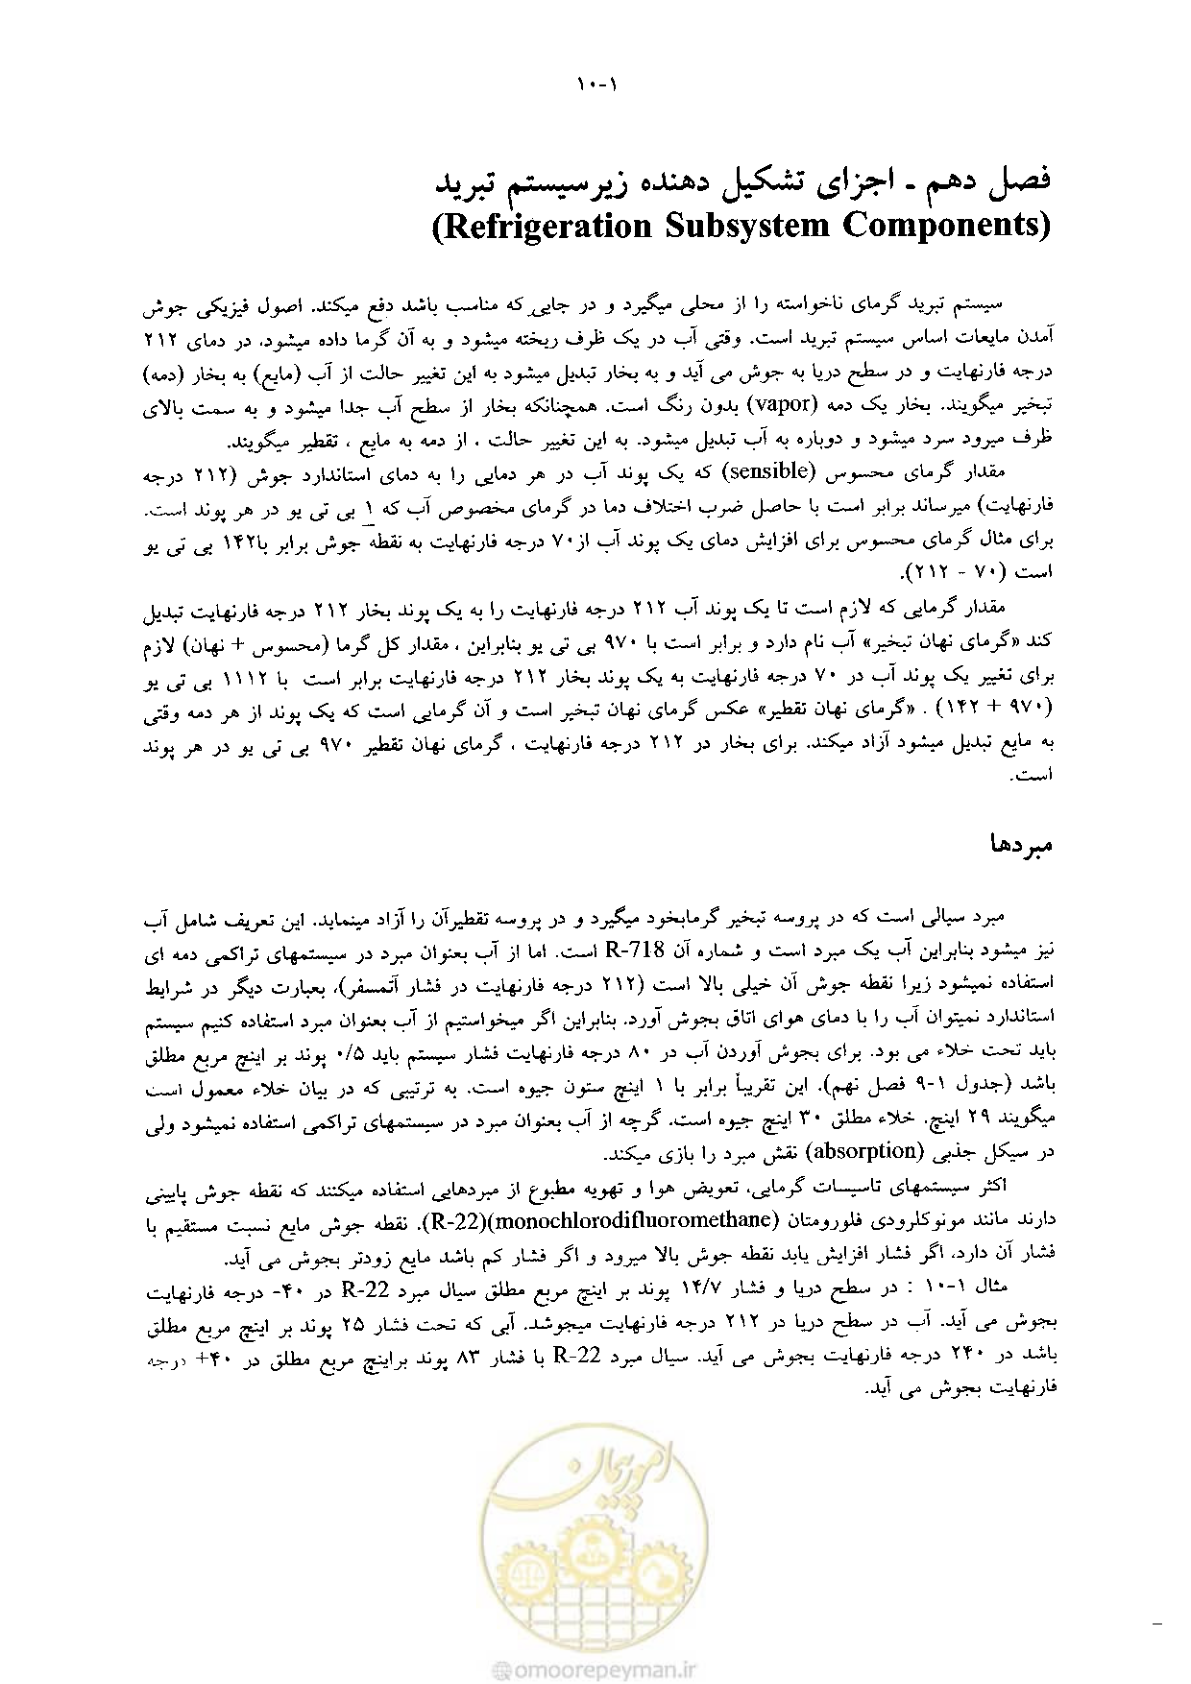 ۱۰-۱
فصل دهم ـ اجزای تشکیل دهنده زیرسیستم تبرید
(Refrigeration Subsystem Components)
سیستم تبرید گرمای ناخواسته را از محلی میگیرد و در جایی که مناسب باشد دفع میکند. اصول فیزیکی جوش
آمدن مایعات اساس سیستم تبرید است. وقتی آب در یک ظرف ریخته میشود و به آن گرما داده میشود، در دمای ۲۱۲
درجه فارنهایت و در سطح دریا به جوش می آید و به بخار تبدیل میشود به این تغییر حالت از آب (مایع) به بخار (دمه)
تبخیر میگویند. بخار یک دمه (vapor) بدون رنگ است. همچنانکه بخار از سطح آب جدا میشود و به سمت بالای
ظرف میرود سرد میشود و دوباره به آب تبدیل میشود. به این تغییر حالت ، از دمه به مایع ، تقطیر میگویند.
مقدار گرمای محسوس (sensible) که یک پوند آب در هر دمایی را به دمای استاندارد جوش (۲۱۲ درجه
فارنهایت) میرساند برابر است با حاصل ضرب اختلاف دما در گرمای مخصوص آب که ۱ بی تی یو در هر پوند است.
برای مثال گرمای محسوس برای افزایش دمای یک پوند آب از ۷۰ درجه فارنهایت به نقطه جوش برابر با ۱۴۲ بی تی یو
است (۷۰ - ۲۱۲).
مقدار گرمایی که لازم است تا یک پوند آب ۲۱۲ درجه فارنهایت را به یک پوند بخار ۲۱۲ درجه فارنهایت تبدیل
کند «گرمای نهان تبخیر» آب نام دارد و برابر است با ۹۷۰ بی تی یو بنابراین ، مقدار کل گرما (محسوس + نهان) لازم
برای تغییر یک پوند آب در ۷۰ درجه فارنهایت به یک پوند بخار ۲۱۲ درجه فارنهایت برابر است با ۱۱۱۲ بی تی یو
(۹۷۰ + ۱۴۲) . «گرمای نهان تقطیر» عکس گرمای نهان تبخیر است و آن گرمایی است که یک پوند از هر دمه وقتی
به مایع تبدیل میشود آزاد میکند. برای بخار در ۲۱۲ درجه فارنهایت ، گرمای نهان تقطیر ۹۷۰ بی تی یو در هر پوند
است.
مبردها
مبرد سیالی است که در پروسه تبخیر گرمابخود میگیرد و در پروسه تقطیرآن را آزاد مینماید. این تعریف شامل آب
نیز میشود بنابراین آب یک مبرد است و شماره آن R-718 است. اما از آب بعنوان مبرد در سیستمهای تراکمی دمه ای
استفاده نمیشود زیرا نقطه جوش آن خیلی بالا است (۲۱۲ درجه فارنهایت در فشار آتمسفر)، بعبارت دیگر در شرایط
استاندارد نمیتوان آب را با دمای هوای اتاق بجوش آورد. بنابراین اگر میخواستیم از آب بعنوان مبرد استفاده کنیم سیستم
باید تحت خلاء می بود. برای بجوش آوردن آب در ۸۰ درجه فارنهایت فشار سیستم باید ۰/۵ پوند بر اینچ مربع مطلق
باشد (جدول ۱-۹ فصل نهم). این تقریباً برابر با ۱ اینچ ستون جیوه است. به ترتیبی که در بیان خلاء معمول است
میگویند ۲۹ اینچ. خلاء مطلق ۳۰ اینچ جیوه است. گرچه از آب بعنوان مبرد در سیستمهای تراکمی استفاده نمیشود ولی
در سیکل جذبی (absorption) نقش مبرد را بازی میکند.
اکثر سیستمهای تاسیسات گرمایی، تعویض هوا و تهویه مطبوع از مبردهایی استفاده میکنند که نقطه جوش پایینی
دارند مانند مونوکلرودی فلورومتان (monochlorodifluoromethane)(R-22). نقطه جوش مایع نسبت مستقیم با
فشار آن دارد، اگر فشار افزایش یابد نقطه جوش بالا میرود و اگر فشار کم باشد مایع زودتر بجوش می آید.
مثال ۱-۱۰ : در سطح دریا و فشار ۱۴/۷ پوند بر اینچ مربع مطلق سیال مبرد R-22 در ۴۰- درجه فارنهایت
بجوش می آید. آب در سطح دریا در ۲۱۲ درجه فارنهایت میجوشد. آبی که تحت فشار ۲۵ پوند بر اینچ مربع مطلق
باشد در ۲۴۰ درجه فارنهایت بجوش می آید. سیال مبرد R-22 با فشار ۸۳ پوند براینچ مربع مطلق در ۴۰+ درجه
فارنهایت بجوش می آید.
امور پیمان
@omoorepeyman.ir